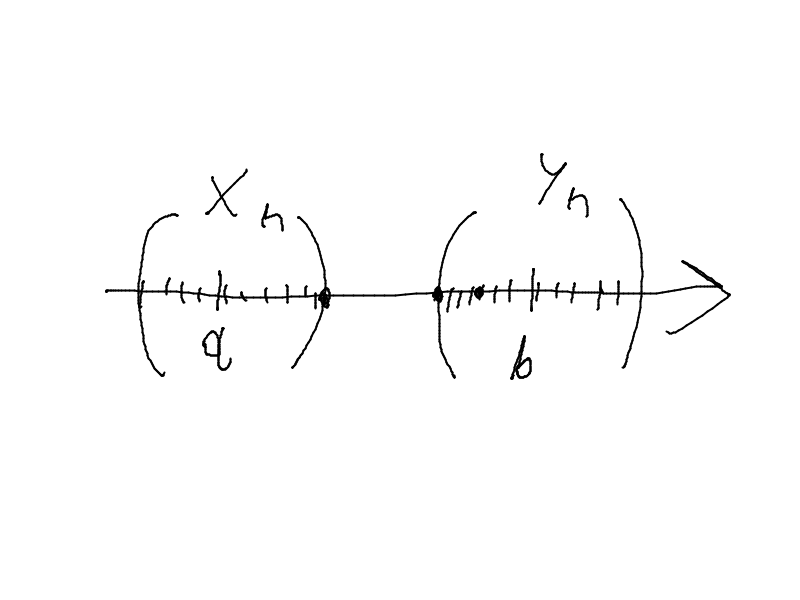 Xn Yn
a b